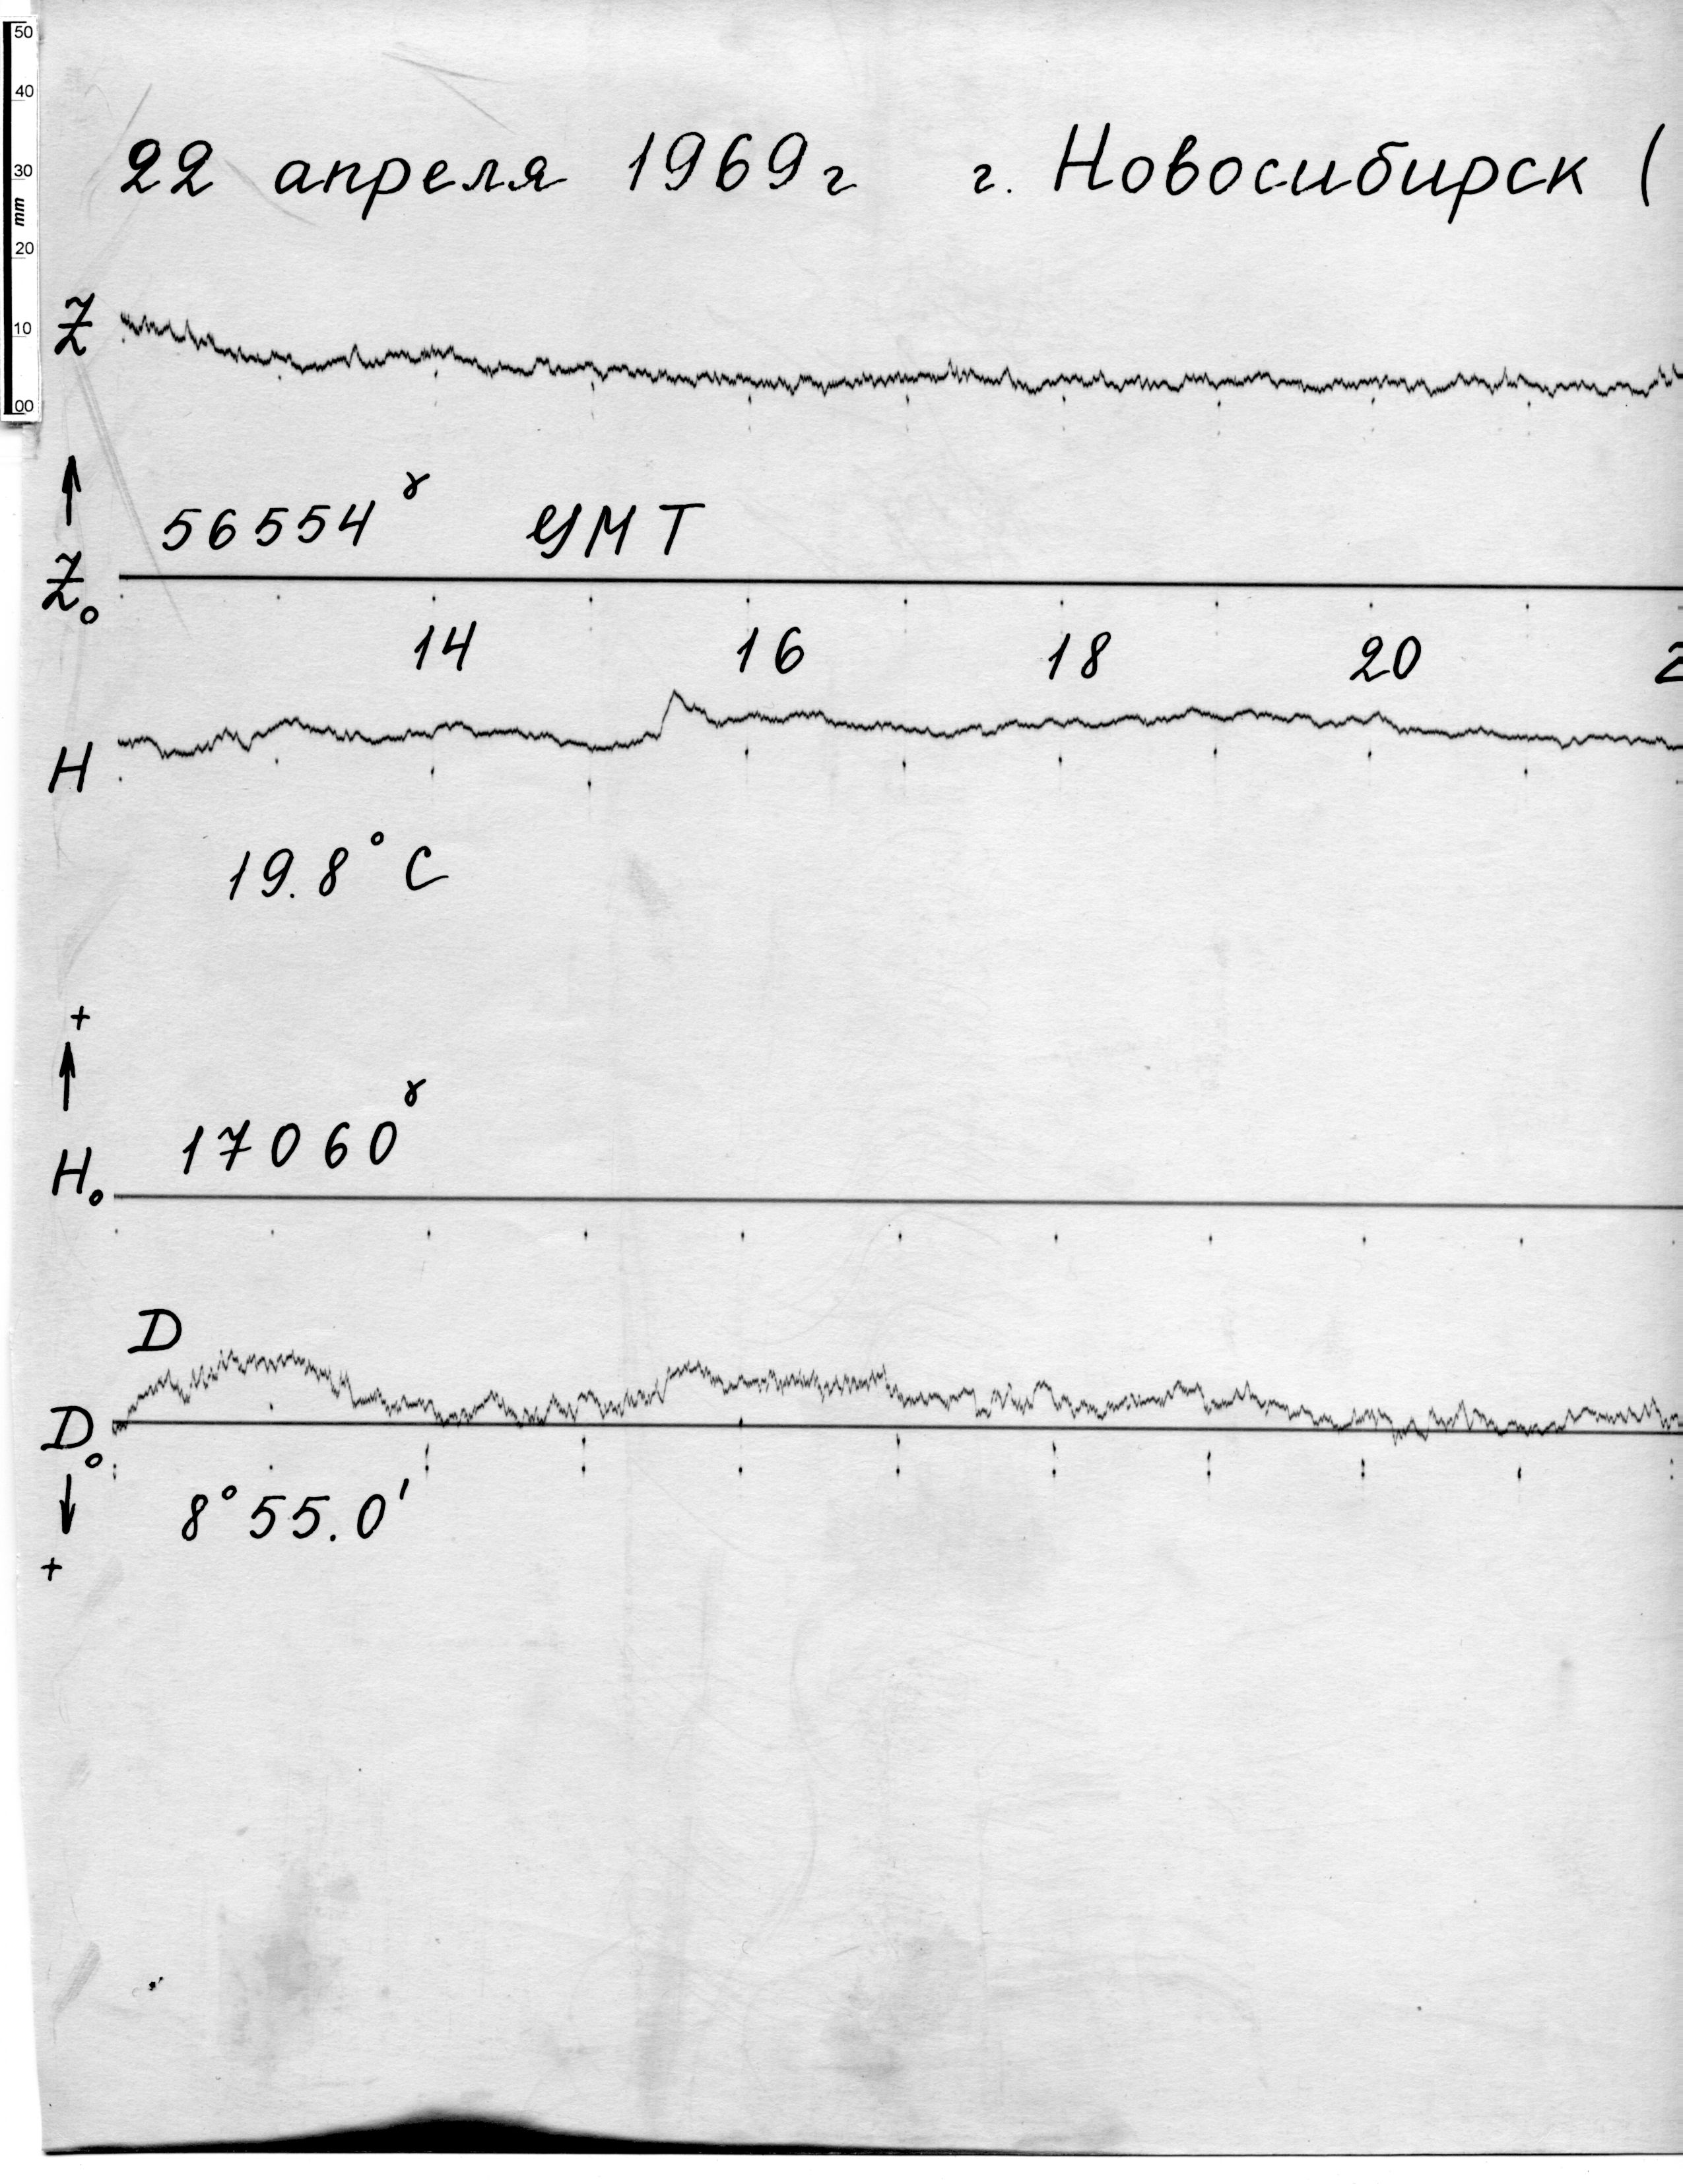 50
40
30
mm
20
10
00
22 апреля 1969г г. Новосибирск (
Z
56554γ УМТ
Z₀
14 16 18 20
H
19.8°C
+
17060γ
H₀
D
D₀
8°55.0'
+